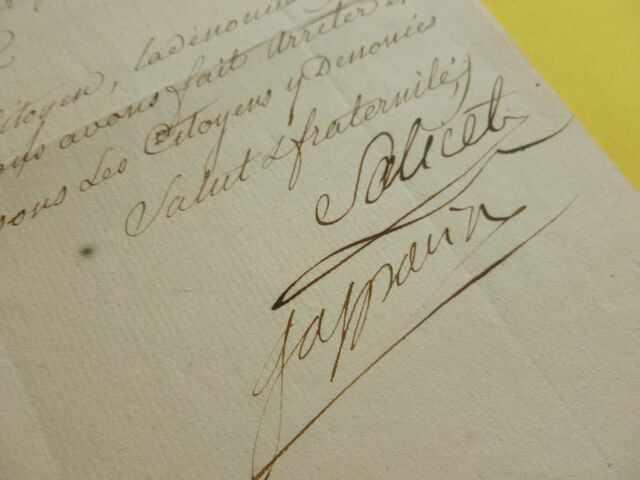 Citoyen, la dénonci
ous avons fait arrêter et
sons Les Citoyens y Denoncés
Salut & fraternité,
Salicet
Gasparin